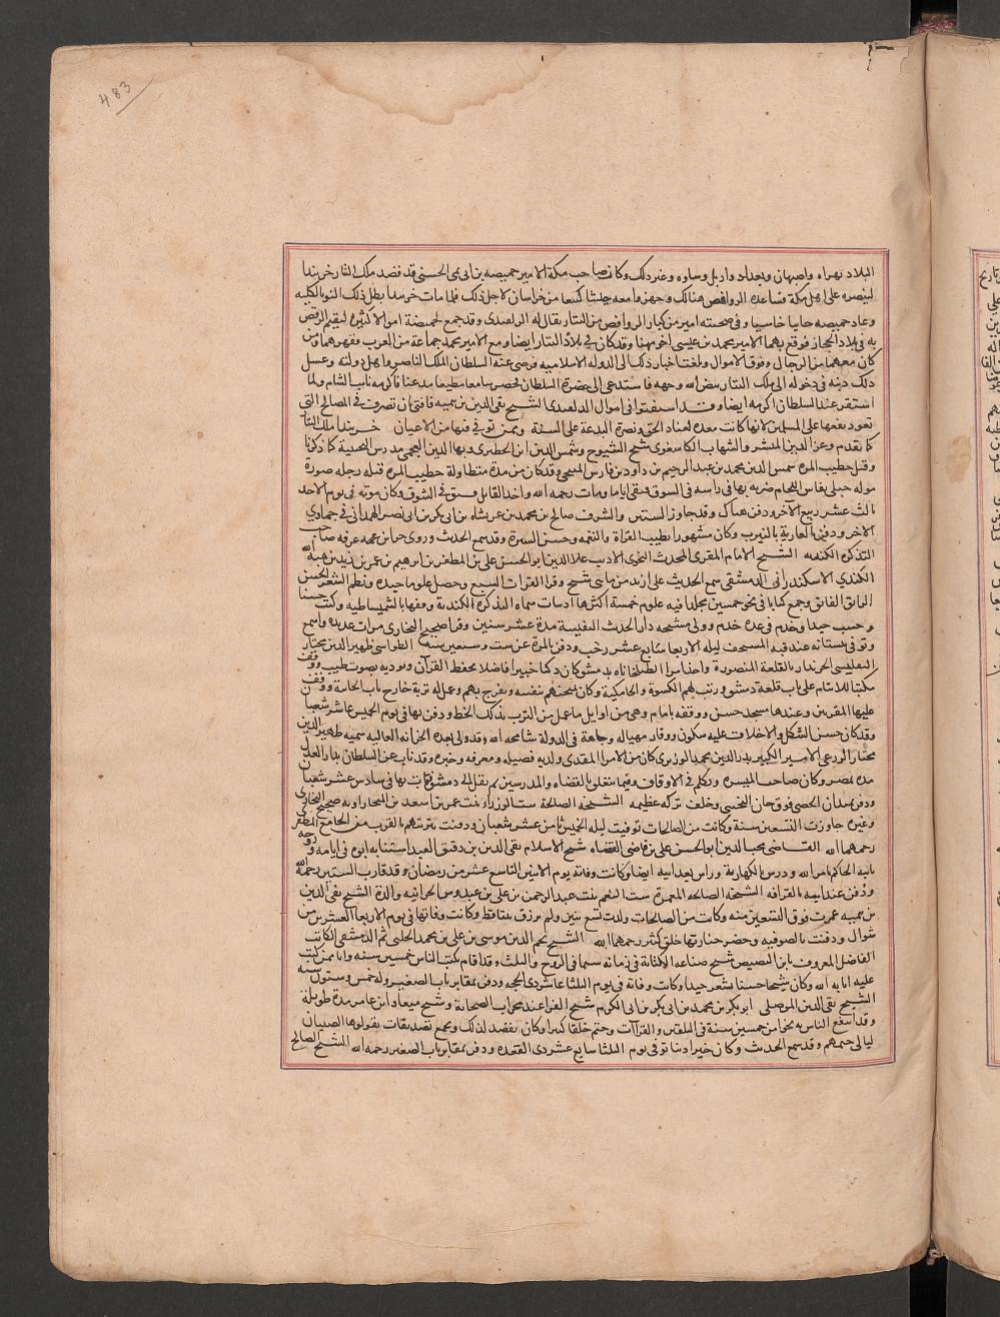 483
البلاد بهراه واصبهان وبغداد واربل وساوه وغير ذلك وكان صاحب مكة الامير حميصه بن ابى نمى الحسنى قد قصد ملك التتار خربندا
لينصره على اهل مكة فساعده الروافض هنالك وجهزوا معه جيشا كثيفا من خراسان لاجل ذلك فلما مات خربندا بطل ذلك التوبالكليه
وعاد حميصه خايبا خاسيا وفى صحبته امير من كبار الروافض من التتار يقال له الدلقندى وقد جمع لحميضة اموالا كثيره ليقيم الرفض
به فى بلاد الحجاز فوقع بهما الامير محمد بن عيسى اخو مهنا وقد كان فى بلاد التتار ايضا ومعه الامير محمد جماعة من العرب فقهرهما ومن
كان معهما من الرجال وفوق الاموال وبلغت اخبار ذلك الى الدوله الاسلاميه فرضى عنه السلطان الملك الناصر واهل دولته وغسل
ذلك ذنبه فى دخوله الى ملك التتار بيض الله وجهه فاستدعى الى حضرة السلطان فحضر سامعا مطيعا مذعنا فاكرمه نايب الشام ولما
استقر عند السلطان اكرمه ايضا وقد استفتوا فى اموال الدلقندى الشيخ تقى الدين بن تيميه فافتى ان تصرف فى المصالح التى
تعود نفعها على المسلمين لانها كانت معده لعناد الحق ونصرة البدعة على السنة وممن توفى فيها من الاعيان خربندا ملك التتار
كما تقدم وعز الدين المبشر والشهاب الكاسغرى شيخ الشيوخ وشمس الدين ابن الخطيرى وبها الدين العجمى مدرس النجيبية كما ذكرنا
وقتل خطيب المزه شمس الدين محمد بن عبد الرحيم بن داود بن فارس المنبجى وقد كان من مدة متطاولة خطيب المزه قتله رجله صورة
موله جبلى بفاس اللجام ضربه بها فى راسه فى السوق فبقى اياما ومات رحمه الله واخذ القاتل فشنق فى السوق وكان موته فى يوم الاحد
ثالث عشر ربيع الآخر ودفن هناك وقد جاوز الستين والشرف صالح بن محمد بن عربشاه بن ابى بكر بن ابى نصر الهمدانى فى جمادى
الاخر ودفن بالعاربة بالنيرب وكان مشهورا بطيب القراة والنغمه وحسن السيرة وقد سمع الحديث وروى جزا بن عرفه صاحب
التذكره الكنديه الشيخ الامام المقرى المحدث النحوى الاديب علا الدين ابو الحسن على بن المظفر بن ابرهيم بن عمر بن زيد بن هبة الله
الكندى الاسكندرانى الدمشقى سمع الحديث على ازيد من مائتى شيخ وقرا القرات السبع وحصل علوما جيده ونظم الشعر الحسن
الرائق الفائق وجمع كتابا فى نحو خمسين مجلدا فيه علوم خمسة اكثرها ادبيات سماه التذكرة الكندية وقفها بالشميساطيه وكتب حسنا
وحسب جيدا وخدم فى عده خدم وولى مشيخه دار الحديث النفيسة مدة عشر سنين وقرا صحيح البخارى مرات عديده واسمع
وتوفى ببستانه عند قبه المسجف ليله الاربعا سابع عشر رجب ودفن بالمزة عن ست وسبعين سنه الطواسى ظهير الدين مختار
البلبيسى الخزندار بالقلعة المنصورة واحد امرا الطبلخاناه بدمشق كان ذكيا خبيرا فاضلا يحفظ القرآن ويوديه بصوت طيب ووقف
مكتبا للايتام على باب قلعة دمشق ورتب لهم الكسوة والجامكية وكان يمتحنهم بنفسه ويفرح بهم وعمل له تربة خارج باب الجابية ووقف
عليها المقريين وعندها مسجد حسن ووقفه بامام وهى من اوايل ماعمل من الترب بذلك الخط ودفن بها فى يوم الخميس عاشر شعبان
وقد كان حسن الشكل والاخلاق عليه سكون ووقار مهيباله وجاهة فى الدولة سامحه الله وقد ولى بعده الخزانه العاليه سميه ظهير الدين
مختار الزرعى الامير الكبير بدر الدين محمد الوزيرى كان من الامرا المقدمين ولديه فضيله ومعرفه وخبره وقد ناب عن السلطان بدار العدل
مدة بمصر وكان صاحب الميسره وتكلم فى الاوقاف وفيما يتعلق بالقضاه والمدرسين ثم نقل الى دمشق فمات بها فى سادس عشر شعبان
ودفن بميدان الحصى فوق خان النجيبى وخلف تركه عظيمه الشيخه الصالحة ست الوزرا بنت عمر بن اسعد بن المنجا راويه صحيح البخارى
وغيره جاوزت التسعين سنة وكانت من الصالحات توفيت ليله الخميس ثامن عشر شعبان ودفنت بتربتهم بالقرب من الجامع المظفرى
رحمهما الله القاضى محب الدين ابو الحسن على بن قاضى القضاه شيخ الاسلام تقى الدين بن دقيق العيد استنابه ابوه فى ايامه وزوجه
بابنة الحاكم بامر الله ودرس بالكهارية وراس بعد ابيه ايضا وكانت وفاته يوم الاثنين التاسع عشر من رمضان وقد قارب الستين رحمه الله
ودفن عند ابيه بالقرافه الشيخة الصالحه المعمرة ست النعم بنت عبد الرحمن بن على بن عبدوس الحرانيه والدة الشيخ تقى الدين
بن تيميه عمرت فوق التسعين سنه وكانت من الصالحات ولدت تسع بنين ولم ترزق بنتا قط وكانت وفاتها فى يوم الاربعا العشرين من
شوال ودفنت بالصوفيه وحضر جنازتها خلق كثير رحمها الله الشيخ نجم الدين موسى بن على بن محمد الحلبى ثم الدمشقى الكاتب
الفاضل المعروف بابن البصيص شيخ صناعه الكتابة فى زمانه سيما فى المزوج والمثلث وقد اقام يكتب الناس خمسين سنه وانا ممن كتب
عليه اثابه الله وكان شيخا حسنا يشعر جيدا وكانت وفاته فى يوم الثلثا عاشر ذى الحجه ودفن بمقابر باب الصغير وله خمس وستون سنه
الشيخ تقى الدين الموصلى ابو بكر بن محمد بن ابى بكر بن ابى الكرم شيخ القرا عند محراب الصحابة وشيخ ميعاد ابن عامر مدة طويلة
وقد انتفع الناس به نحوا من خمسين سنة فى التلقين والقرآات وختم خلقا كثيرا وكان يقصد لذلك ويجمع تصديقات يقولوها الصبيان
ليالى ختمهم وقد سمع الحديث وكان خيرا دينا توفى يوم الثلثا سابع عشر ذى القعده ودفن بمقابر باب الصغير رحمه الله الشيخ الصالح